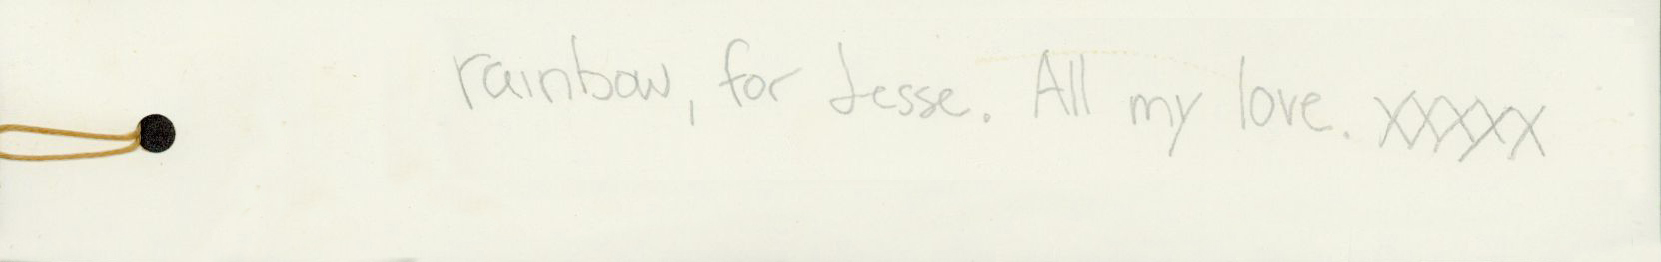 rainbow, for Jesse. All my love. xxxxx